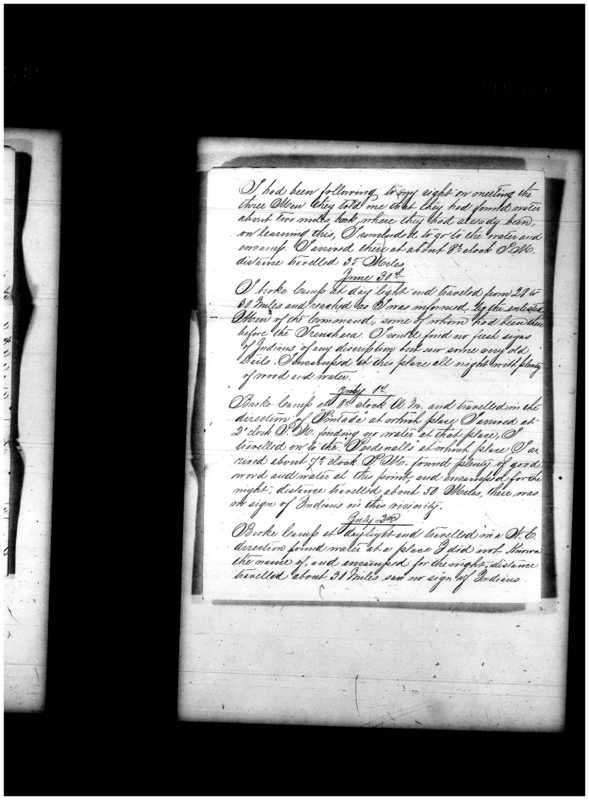 I had been following to my right on meeting the
three Men they told me that they had found water
about two miles back, where they had already been,
on learning this, I concluded to go to the water and
encamp. I arrived there at about 8 o'clock P.M.
distance travelled 35 Miles
June 30th
I broke Camp at day light and traveled from 28 to
30 Miles and reached as I was informed, by the enlisted
Men of the Command, some of whom had been there
before the Trenchara. I could find no fresh signs
of Indians of any description but saw some very old
trails. I encamped at this place all night with plenty
of wood and water.
July 1st
Broke Camp at 8 o'clock A.M. and travelled in the
direction of Pintada at which place I arrived at
2 o'clock P.M. finding no water at that place, I
travelled on to the "Pardenalls" at which place I ar
rived about 7 o'clock P.M. found plenty of good
wood and water at this point and encamped for the
night, distance travelled about 50 Miles, there was
no sign of Indians in this vicinity.
July 2nd
Broke Camp at daylight and travelled in a N.E.
direction found water at a place I did not know
the name of, and encamped for the night, distance
travelled about 31 Miles saw no sign of Indians